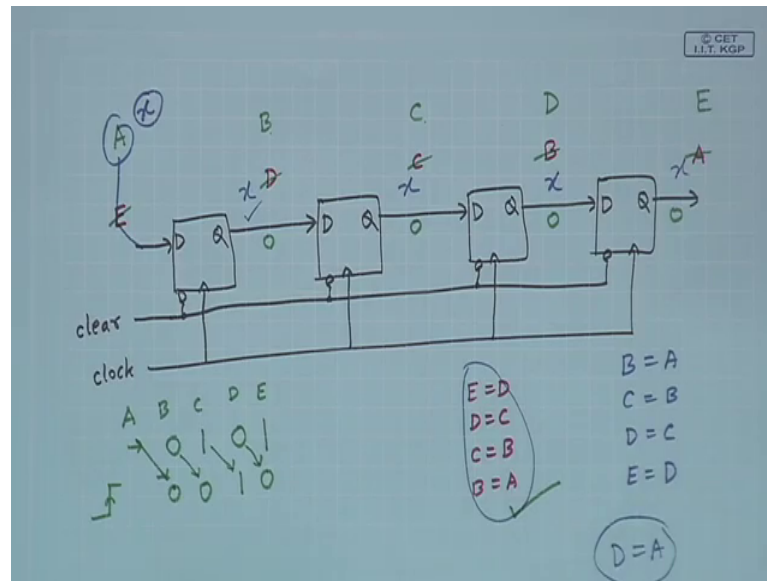 © CET
I.I.T. KGP
A x
B C D E
E
x D
x C
x B
x A
D Q
0
D Q
0
D Q
0
D Q
0
clear
clock
A B C D E
0 1 0 1
0 0 1 0
E = D
D = C
C = B
B = A
B = A
C = B
D = C
E = D
D = A